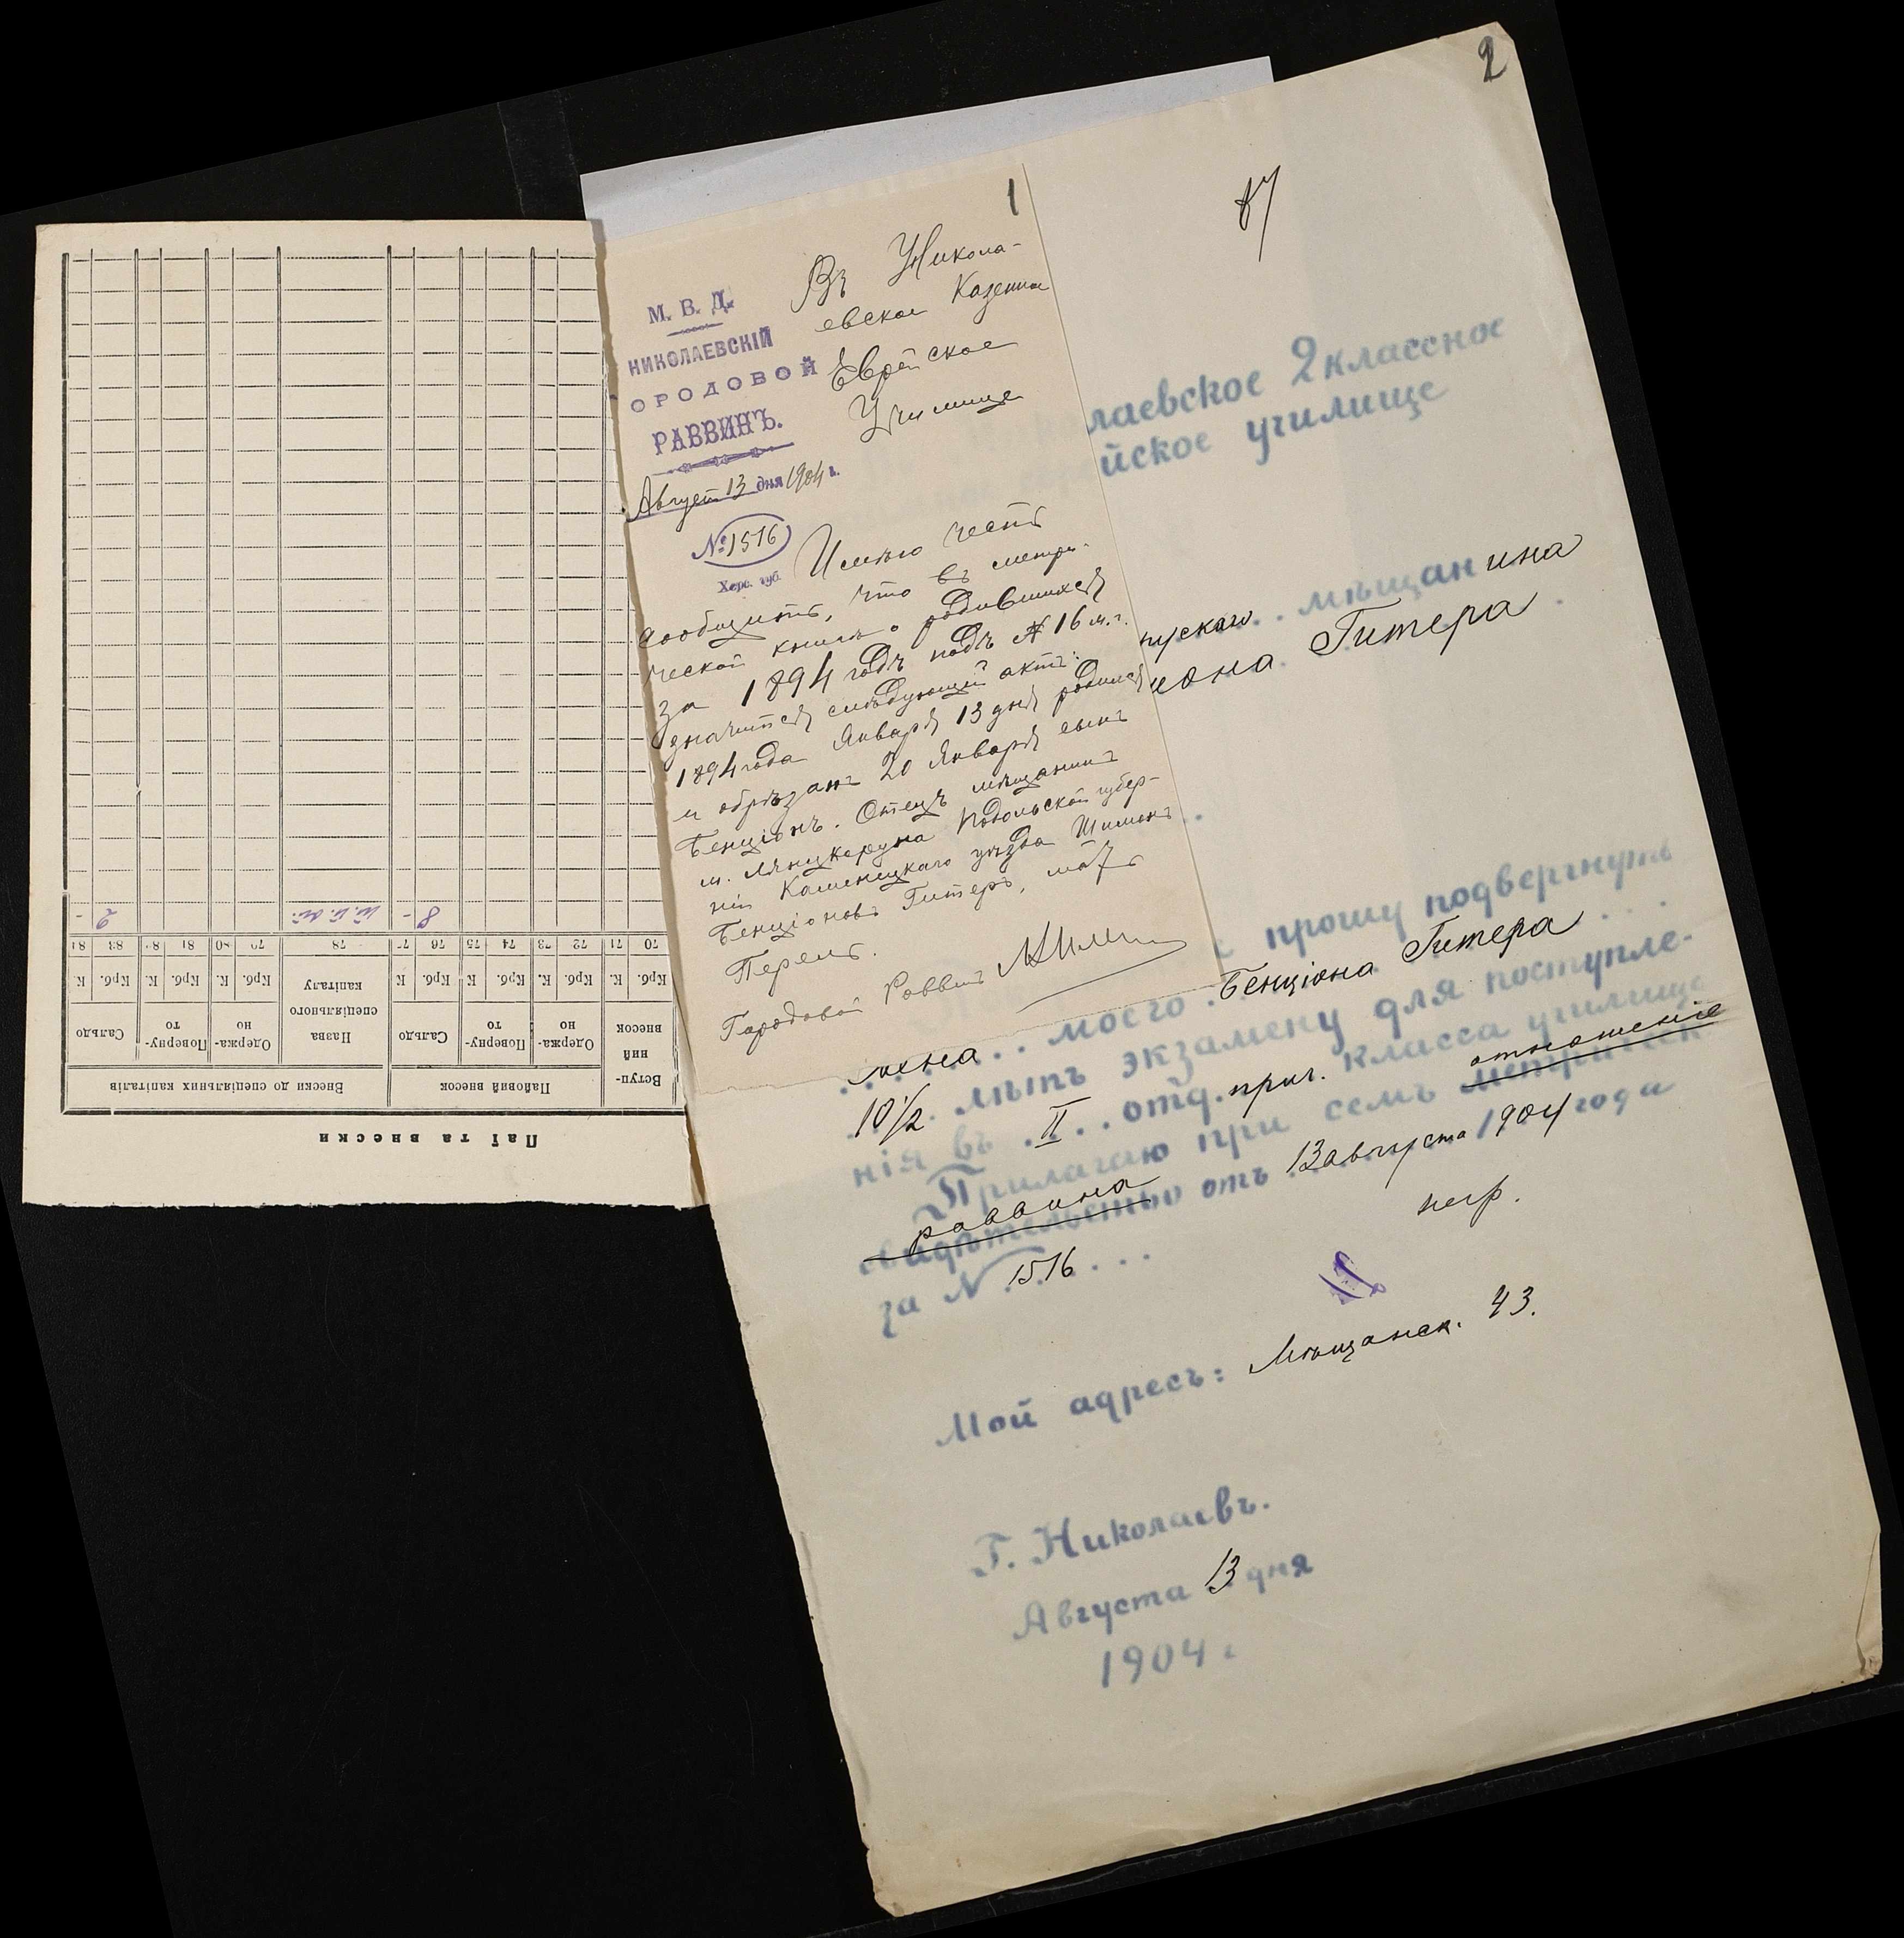 М. В. Д.
НИКОЛАЕВСКІЙ
ОРОДОВОЙ
РАВВИНЪ.
Август 13 дня 1904 г.
№ 1516
Херс. губ.
1
Въ Никола-
евское Казенное
Еврейское
Училище
Имѣю честь
сообщить, что въ метри-
ческой книгѣ о родившихся
за 1894 годъ подъ № 16 м.г.
значится слѣдующій актъ:
1894 года Января 13 дня родился
и обрѣзанъ 20 Января сынъ
Бенціонъ. Отецъ мѣщанинъ
м. Лянцкоруна Подольской губер-
ніи Каменецкаго уѣзда Шимонъ
Бенціоновъ Гитеръ, мать
Перель.
Городовой Раввинъ
2
лаевское 2 классное
йское училище
мѣщанина
іона Гитера
прошу подвергнуть
моего Бенціона Гитера
10 1/2 лѣтъ экзамену для поступле-
нія въ II отд. приг. класса училища
Прилагаю при семъ метрическ отношеніе
свидѣтельство раввина отъ 13 августа 1904 1904 года
за № 1516
негр.
Мой адресъ: Мѣщанск. 43.
Г. Николаевъ.
Августа 13 дня
1904 г
Паї та внески
Вступ-
ний
внесок
Пайовий внесок
Внески до спеціяльних капіталів
Одержа-
но
Поверну-
то
Сальдо
Назва
спеціяльного
капіталу
Одержа-
но
Поверну-
то
Сальдо
Крб. К. Крб. К. Крб. К. Крб. К Крб. К. Крб. К. Крб. К
70 71 72 73 74 75 76 77 78 79 80 81 82 83 84
8 - 2 -